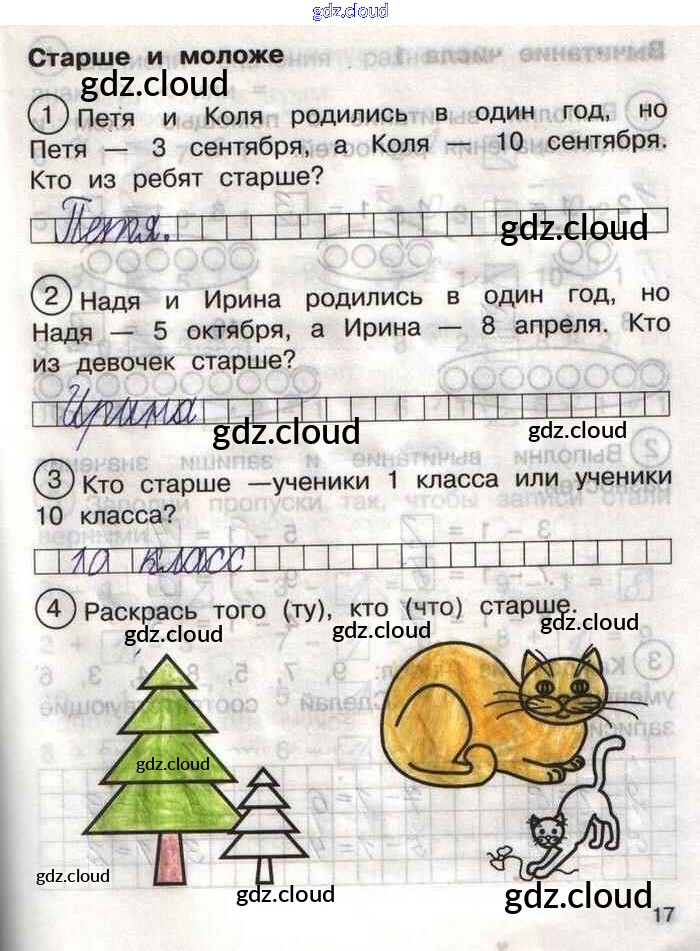 gdz.cloud
Старше и моложе
Вычитание числа 1
gdz.cloud
1 Петя и Коля родились в один год, но
Петя — 3 сентября, а Коля — 10 сентября.
Кто из ребят старше?
Петя.
gdz.cloud
2 Надя и Ирина родились в один год, но
Надя — 5 октября, а Ирина — 8 апреля. Кто
из девочек старше?
Ирина
gdz.cloud
gdz.cloud
3 Кто старше —ученики 1 класса или ученики
10 класса?
10 класс
4 Раскрась того (ту), кто (что) старше.
gdz.cloud
gdz.cloud
gdz.cloud
gdz.cloud
gdz.cloud
gdz.cloud
gdz.cloud
17